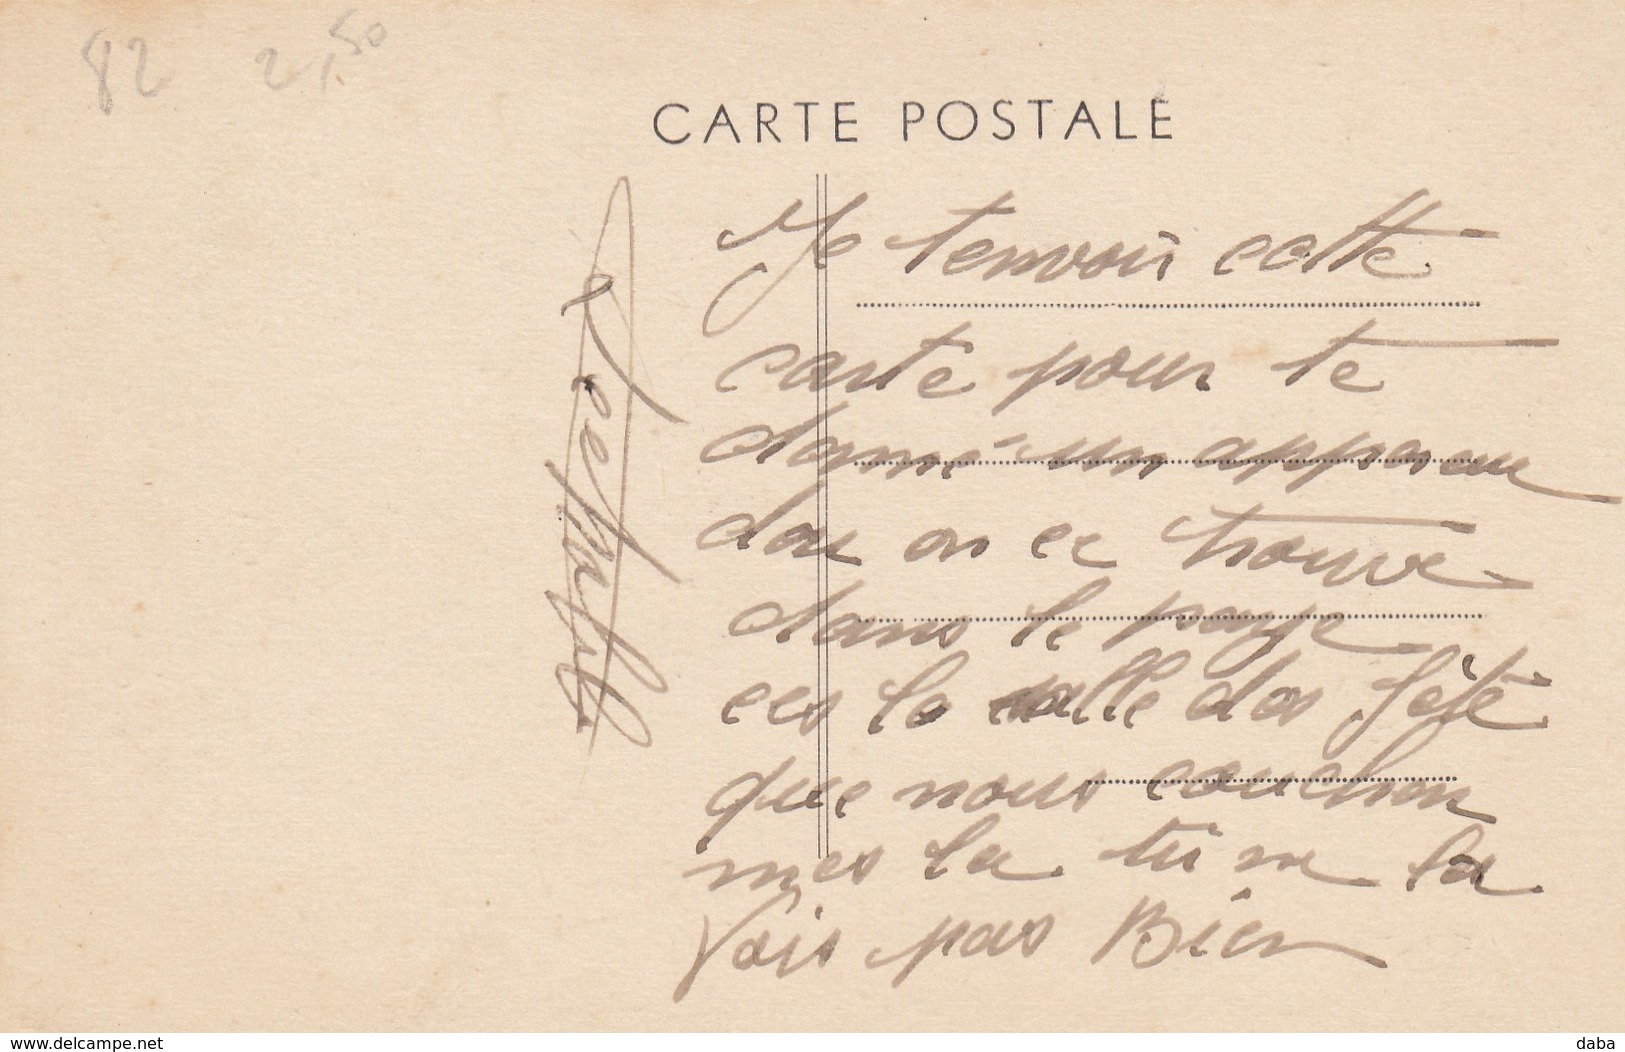 82 2,50
CARTE POSTALE
Je tenvoir cette
carte pour te
donné un apperau
dou on ce trouve
dans le paye
ces la salle des fêté
que nous couchon
mes la tu ne la
Vois pas Bien
www.delcampe.net daba